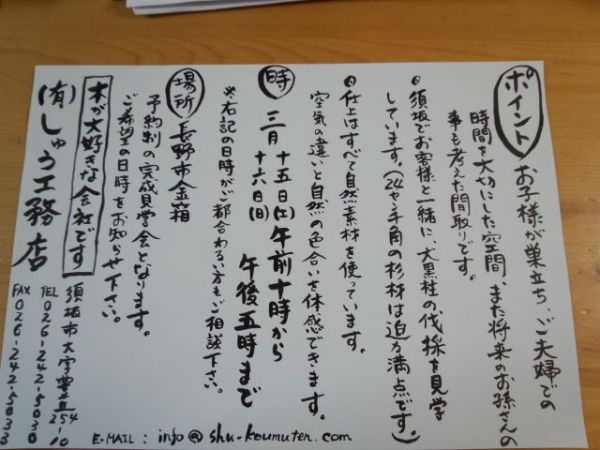 ポイント お子様が巣立ち、ご夫婦での
時間を大切にした空間、また将来のお孫さんの
事も考えた間取りです。
須坂でお客様と一緒に、大黒柱の伐採を見学
しています。(24㎝手角の杉材は迫力満点です。)
仕上はすべて自然素材を使っています。
空気の違いと自然の色合いを体感できます。
時 三月 十五日(土) 午前十時から
十六日(日) 午後五時まで
※右記の日時がご都合わるい方もご相談下さい。
場所 長野市金箱
予約制の完成見学会となります。
ご希望の日時をお知らせ下さい。
木が大好きな会社です
(有)しゅう工務店
須坂市大字豊丘254-10
TEL 026-242-5030
FAX 026-242-5033
E-MAIL : info@shu-koumuten.com